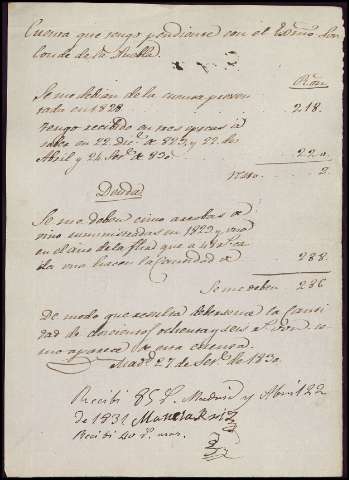 Cuenta que tengo pendiente con el Exmo. Sor.
Conde de la Puebla.
Ron.
Se me debian de la cuenta presen
tada en 1828 218.
tengo recibido en tres épocas á
saber en 22 Dic. de 829, y 22 de
Abril y 24 Set.e de 830 220.
2
Deuda
Se me deben cinco arrobas de
vino suministradas en 1829 y una
en el año de la fha que a 48 rs. ca
da una hacen la cantidad de 288.
Se me deben 286
De modo que resulta deberseme la canti
dad de doscientos ochenta y seis rs. von. co
mo aparece de esta cuenta.
Mad.d 27 de Set.e de 1830.
Recibi 85 r. Madrid y Abril 22
de 1831 Manuel Ruiz
Recibi 40 r. mas.